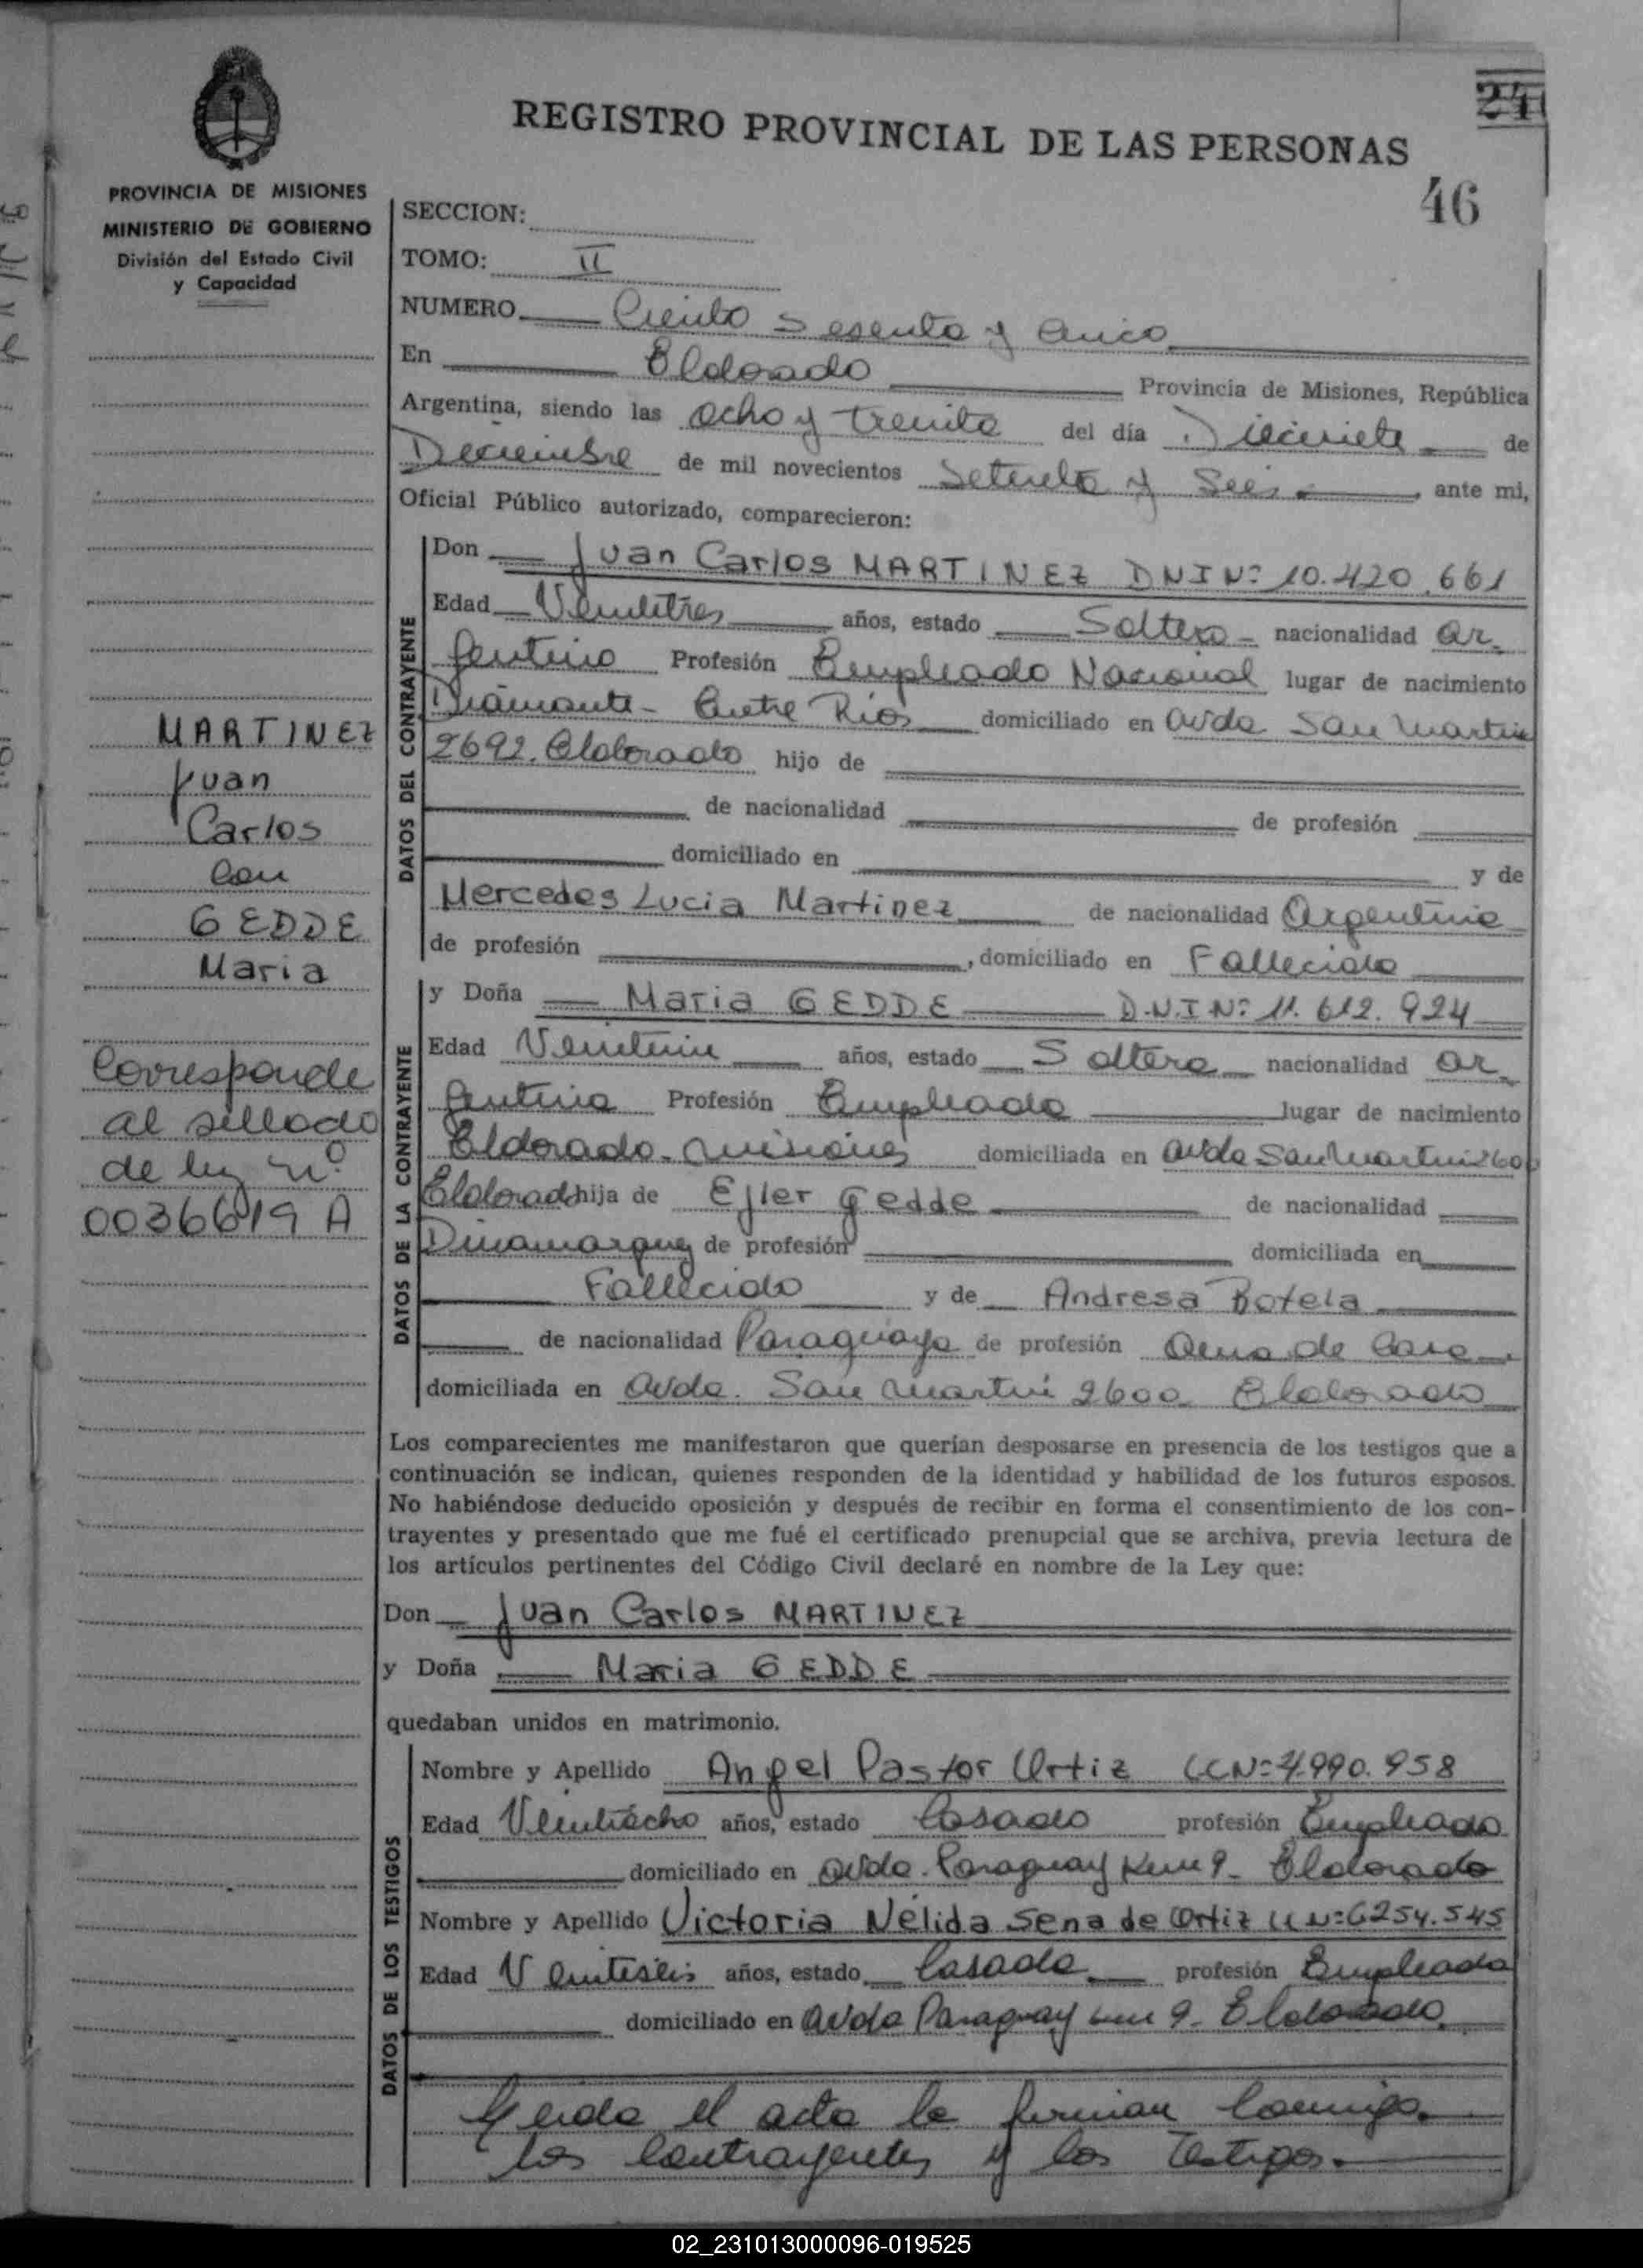 24
REGISTRO PROVINCIAL DE LAS PERSONAS
46
PROVINCIA DE MISIONES
MINISTERIO DE GOBIERNO
División del Estado Civil
y Capacidad
MARTINEZ
Juan
Carlos
Con
GEDDE
Maria
Corresponde
al sellado
de ley nº
0036619 A
SECCION:
TOMO: II
NUMERO Ciento Sesenta y Cinco
En Eldorado Provincia de Misiones, República
Argentina, siendo las ocho y treinta del día Diecisiete de
Diciembre de mil novecientos Setenta y Seis, ante mi,
Oficial Público autorizado, comparecieron:
DATOS DEL CONTRAYENTE
Don Juan Carlos MARTINEZ DNI Nº 10.420.661
Edad Veintitres años, estado Soltero nacionalidad ar-
gentino Profesión Empleado Nacional lugar de nacimiento
Diamante - Entre Rios domiciliado en avda San Martin
2692. Eldorado hijo de
de nacionalidad de profesión
domiciliado en y de
Mercedes Lucia Martinez de nacionalidad Argentina
de profesión , domiciliado en Fallecida
DATOS DE LA CONTRAYENTE
y Doña Maria GEDDE D.N.I Nº 11.612.924
Edad Veintiun años, estado Soltera nacionalidad ar-
gentina Profesión Empleada lugar de nacimiento
Eldorado - Misiones domiciliada en avda San Martin 2600
Eldorado hija de Ejler Gedde de nacionalidad
Dinamarques de profesión domiciliada en
Fallecido y de Andresa Botela
de nacionalidad Paraguaya de profesión Ama de Casa
domiciliada en avda. San Martin 2600 Eldorado
Los comparecientes me manifestaron que querían desposarse en presencia de los testigos que a
continuación se indican, quienes responden de la identidad y habilidad de los futuros esposos.
No habiéndose deducido oposición y después de recibir en forma el consentimiento de los con-
trayentes y presentado que me fué el certificado prenupcial que se archiva, previa lectura de
los artículos pertinentes del Código Civil declaré en nombre de la Ley que:
Don Juan Carlos MARTINEZ
y Doña Maria GEDDE
quedaban unidos en matrimonio.
DATOS DE LOS TESTIGOS
Nombre y Apellido Angel Pastor Ortiz LE Nº 4.990.958
Edad Veintiocho años, estado Casado profesión Empleado
domiciliado en avda. Paraguay Km 9 - Eldorado
Nombre y Apellido Victoria Nélida Sena de Ortiz LC Nº 6254.545
Edad Veintiseis años, estado Casada profesión Empleada
domiciliado en avda Paraguay km 9 - Eldorado
Leida el acta la firman Conmigo
los Contrayentes y los Testigos.
02_231013000096-019525